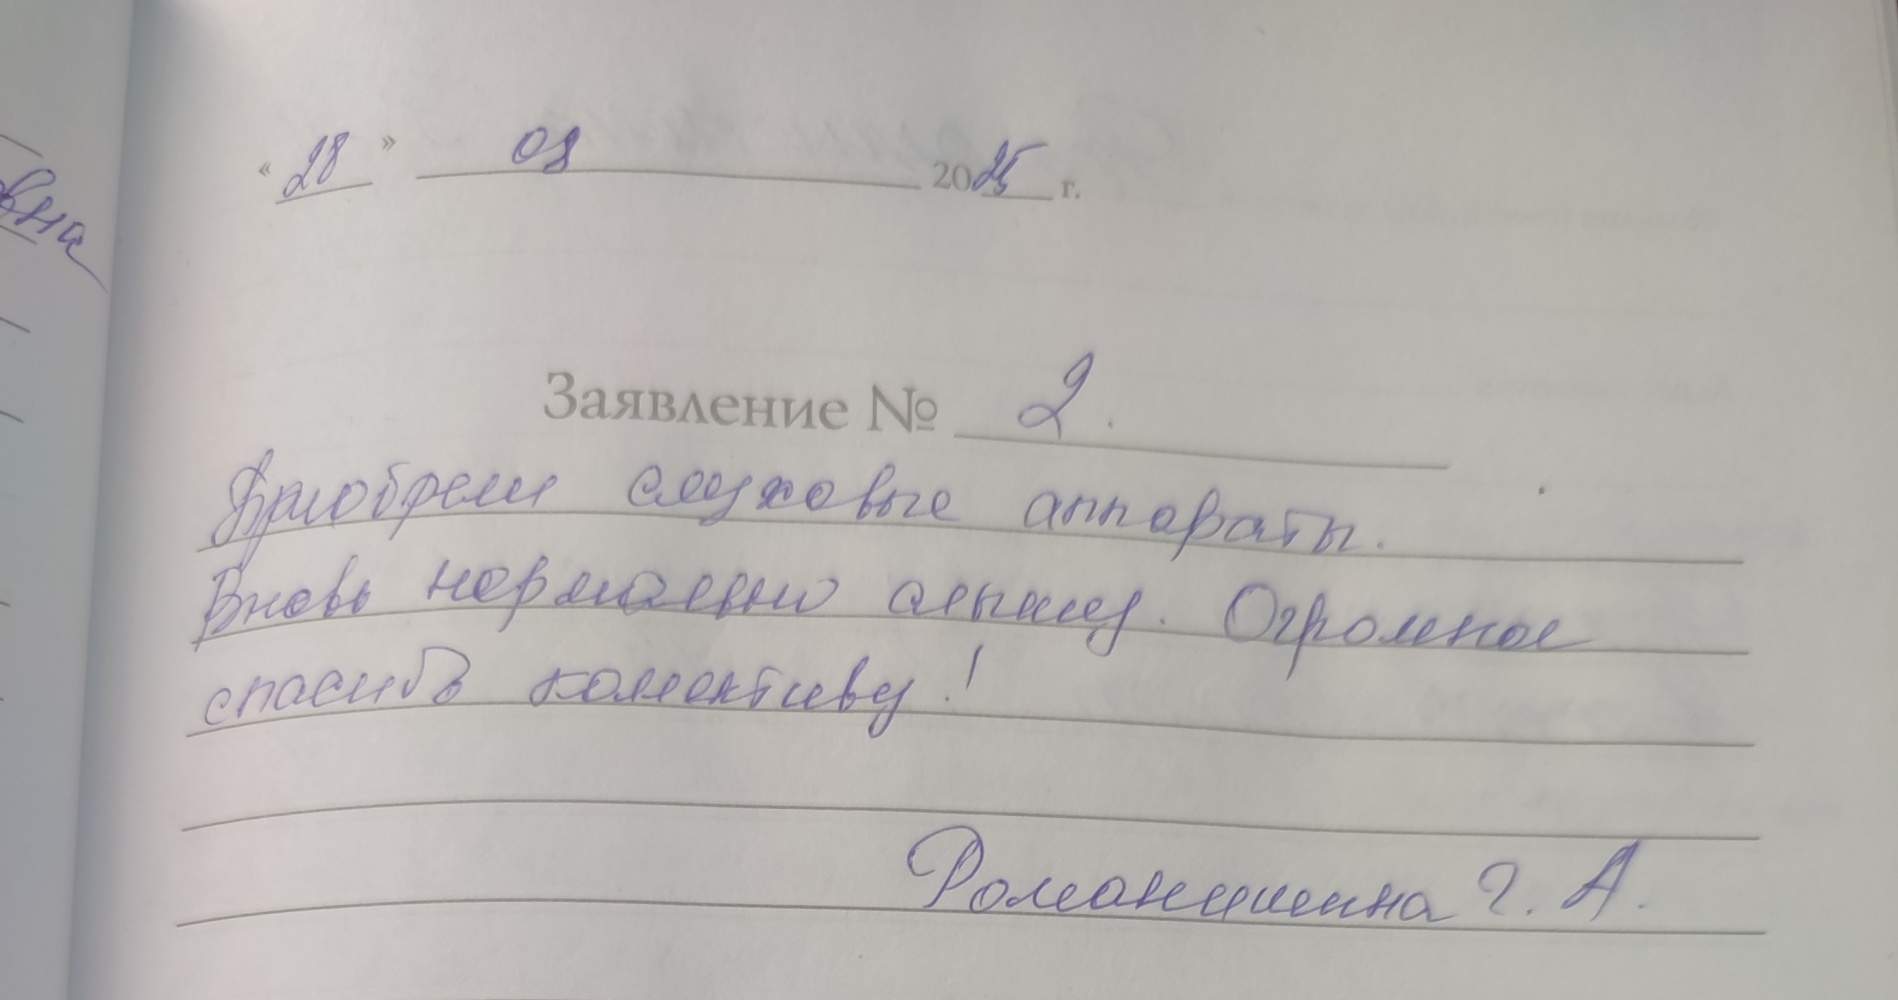 вна
« 28 » 08 2025 г.
Заявление № 2.
Приобрели слуховые аппараты.
Вновь нормально слышу. Огромное
спасибо коллективу!
Г. А.